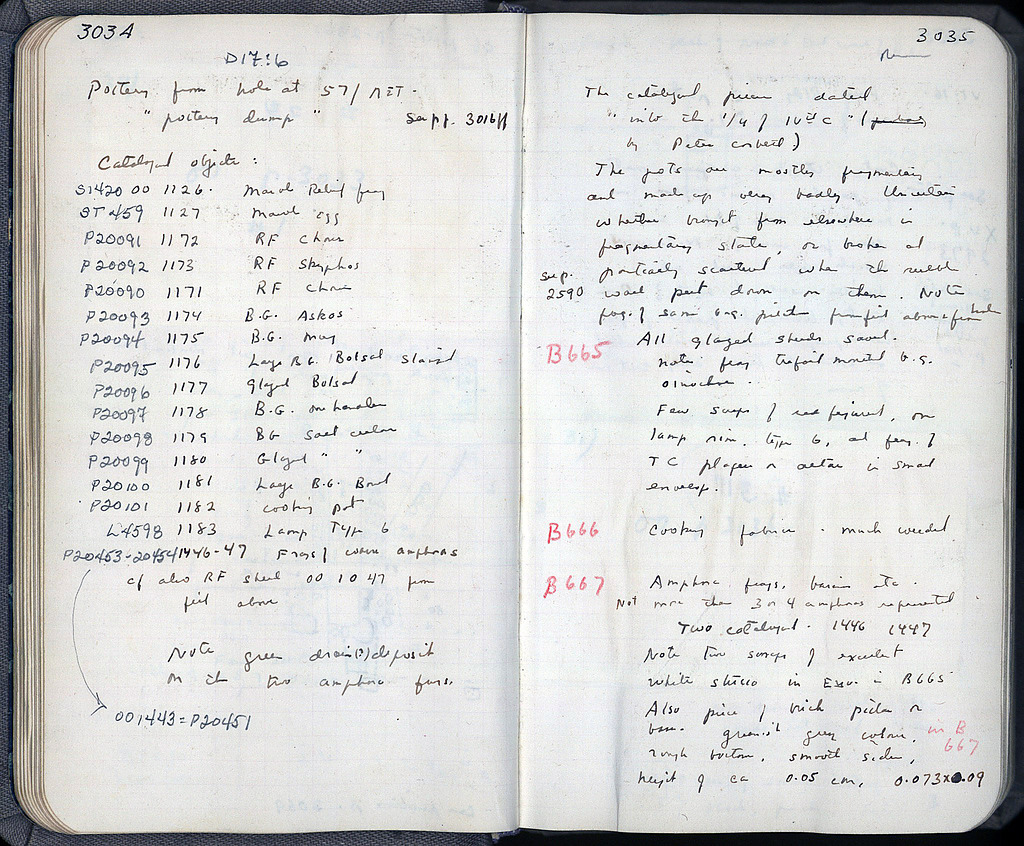 3034
D17:6
Pottery from hole at 57/ΛΕΤ.
" pottery dump " Sa pp. 3016ff
Catalogued objects:
S1420 00 1126. Marble Relief frag
ST 459 1127 Marble egg
P20091 1172 RF Chous
P20092 1173 RF Skyphos
P20090 1171 RF Chous
P20093 1174 B.G. Askos
P20094 1175 B.G. mug
P20095 1176 Large B.G. Bolsal Glazed
P20096 1177 Glazed Bolsal
P20097 1178 B.G. one handler
P20098 1179 BG salt cellar
P20099 1180 Glazed " "
P20100 1181 Large B.G. Bowl
P20101 1182 cooking pot
L4598 1183 Lamp Type 6
P20453-20454 1446-47 Frags of wine amphoras
cf also RF sherd 00 1047 from
fill above
Note green drain(?) deposit
on the two amphora frags.
001443 = P20451
3035
The catalogued pieces dated
" into the 1/4 of IVth C "
by Peter Corbett)
The pots are mostly fragmentary
and made up very badly. Uncertain
whether brought from elsewhere in
fragmentary state, or broken and
partially scattered when the rubble
sup. 2590 was put down on them. Note
frag. of same b.g. from fill above & from hole
B665 All glazed sherds saved.
note frag trefoil mouthed b.g.
oinochoe..
Few scraps of red figured, one
lamp rim, type 6, and frag. of
TC plaque or altar in small
envelop.
B666 Cooking fabrics. much weeded
B667 Amphora frags, basins etc.
Not more than 3 or 4 amphoras represented.
Two catalogued. 1446 1447
Note two scraps of excellent
white stucco in Env. in B665
Also piece of brick
base. greenish grey colour, in B 667
rough bottom, smooth sides,
height of ca 0.05 cm, 0.073x0.09